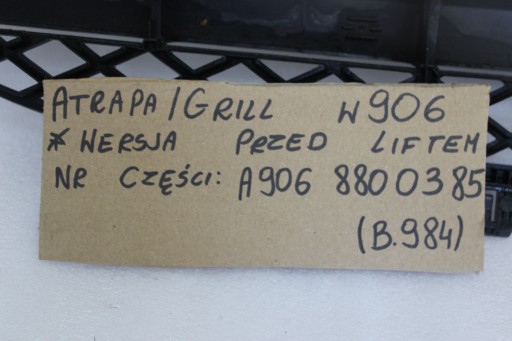 ATRAPA/GRILL W906
* WERSJA PRZED LIFTEM
NR CZĘŚCI: A906 8800385
(B.984)